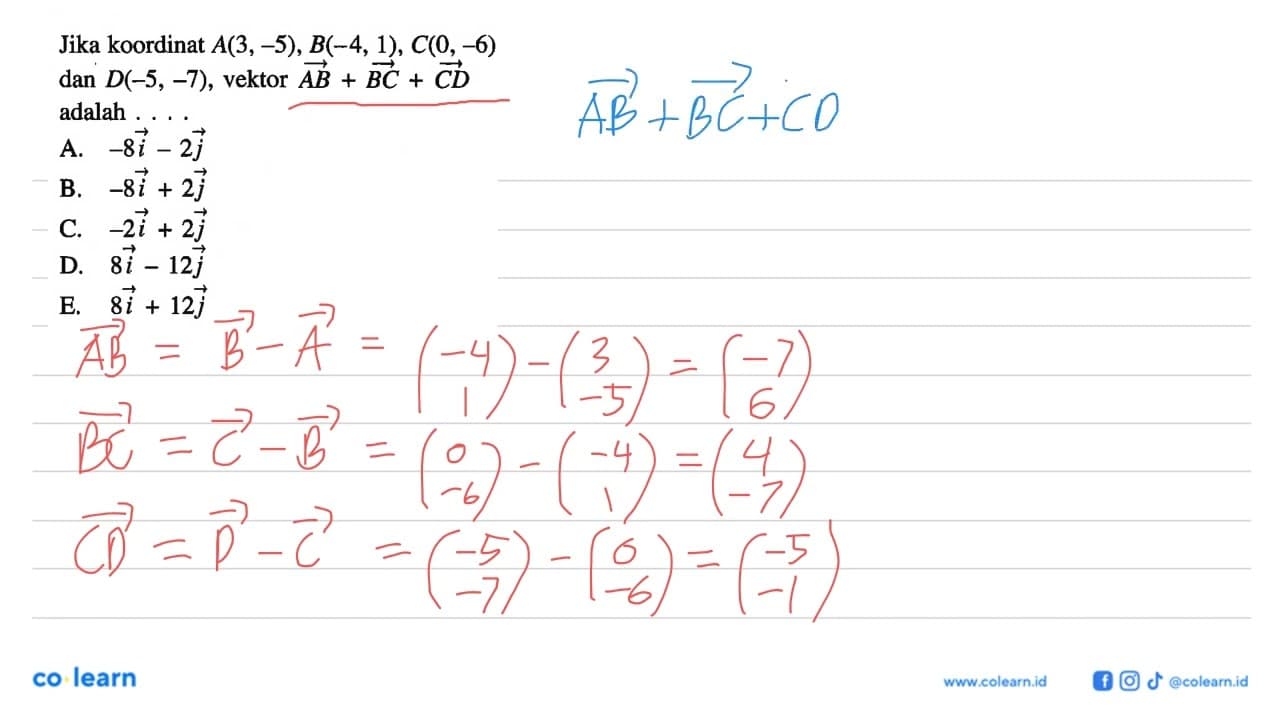 Jika koordinat A(3, –5), B(–4, 1), C(0, –6)
dan D(–5, –7), vektor \overrightarrow{AB} + \overrightarrow{BC} + \overrightarrow{CD}
adalah . . . .
A. –8\vec{i} – 2\vec{j}
B. –8\vec{i} + 2\vec{j}
C. –2\vec{i} + 2\vec{j}
D. 8\vec{i} – 12\vec{j}
E. 8\vec{i} + 12\vec{j}
\overrightarrow{AB} + \overrightarrow{BC} + CD
\overrightarrow{AB} = \vec{B} – \vec{A} = \begin{pmatrix} -4 \\ 1 \end{pmatrix} – \begin{pmatrix} 3 \\ -5 \end{pmatrix} = \begin{pmatrix} -7 \\ 6 \end{pmatrix}
\overrightarrow{BC} = \vec{C} – \vec{B} = \begin{pmatrix} 0 \\ -6 \end{pmatrix} – \begin{pmatrix} -4 \\ 1 \end{pmatrix} = \begin{pmatrix} 4 \\ -7 \end{pmatrix}
\overrightarrow{CD} = \vec{D} – \vec{C} = \begin{pmatrix} -5 \\ -7 \end{pmatrix} – \begin{pmatrix} 0 \\ -6 \end{pmatrix} = \begin{pmatrix} -5 \\ -1 \end{pmatrix}
co learn
www.colearn.id
@colearn.id